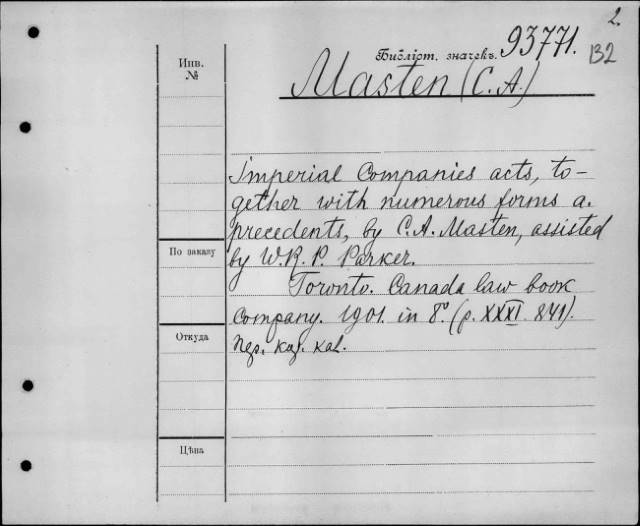 2.
Библіот. значекъ. 93771.
132
Инв.
№
Masten (C. A.)
Imperial Companies acts, to-
gether with numerous forms a.
precedents, by C. A. Masten, assisted
by W. R. P. Parker.
По заказу
Toronto. Canada law book
Company. 1901. in 8º. (p. XXXI. 841).
Откуда
кож. кал.
Цѣна